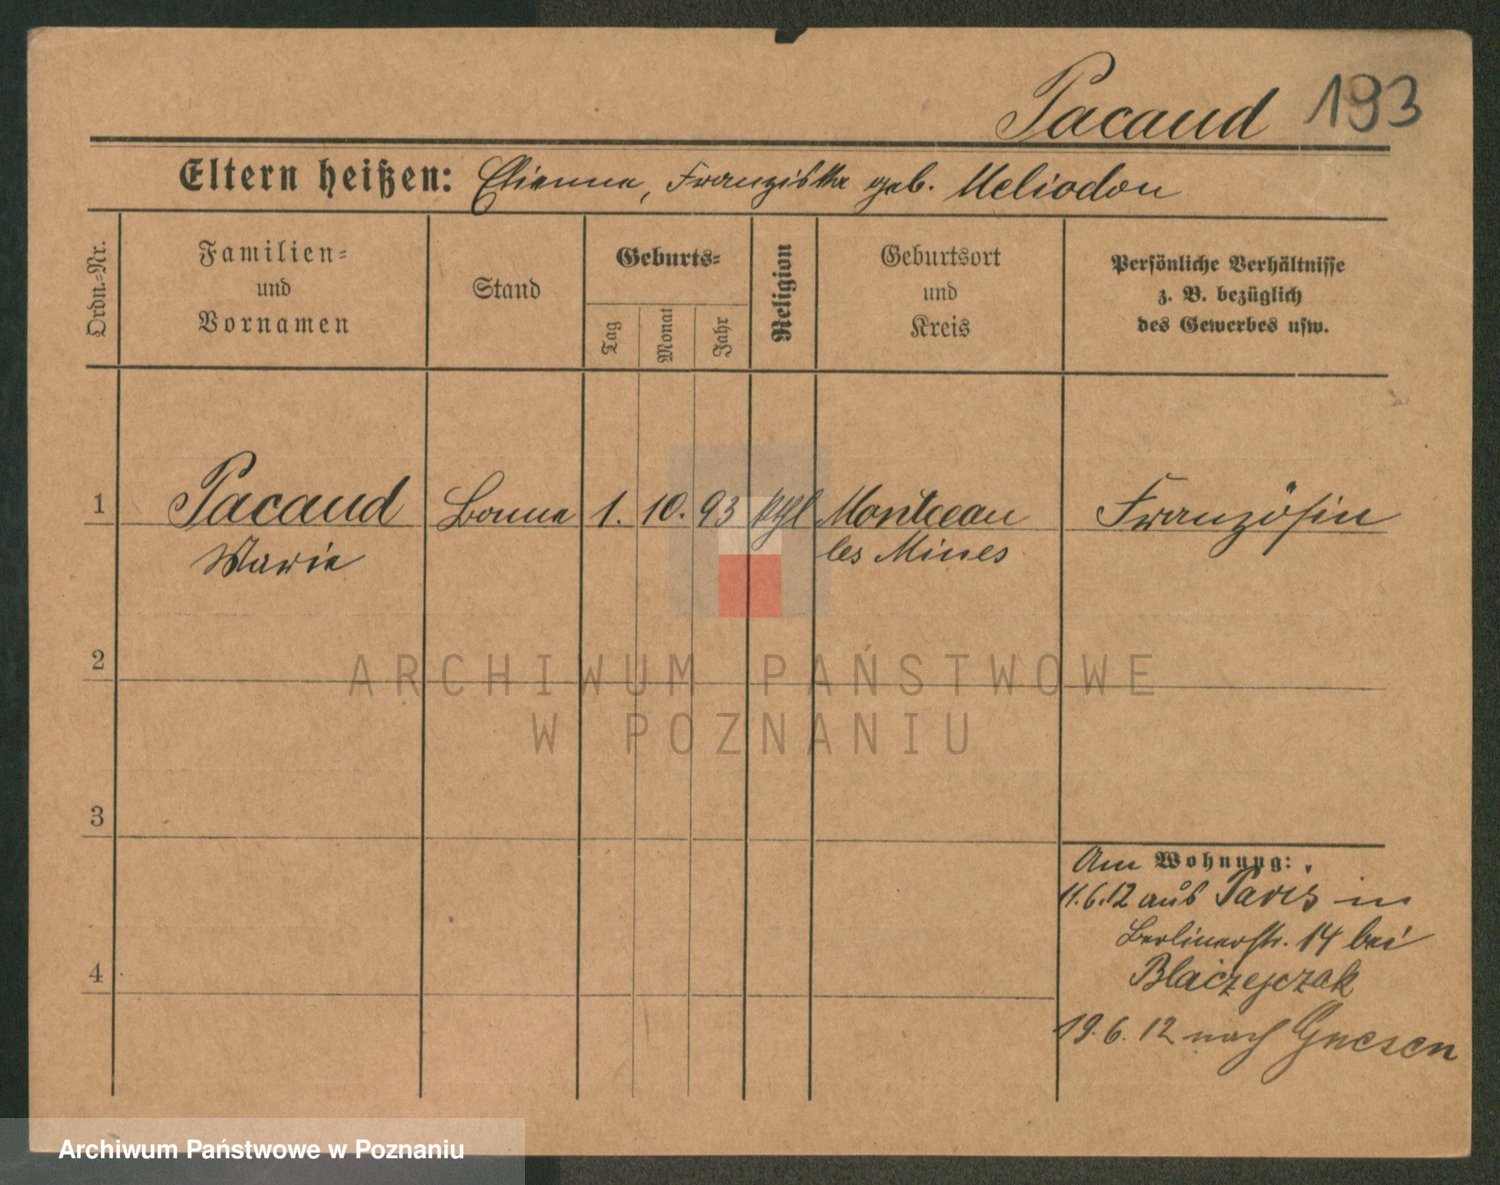 Pacaud 193
Eltern heißen: Etienne, Franziska geb. Meliodon
Ordn.=Nr.
Familien=
und
Vornamen
Stand
Geburts=
Tag
Monat
Jahr
Religion
Geburtsort
und
Kreis
Persönliche Verhältnisse
z. B. bezüglich
des Gewerbes usw.
1 Pacaud Bonne 1. 10. 93 kthl Montceau Französin
Marie les Mines
2
3
4
Am Wohnung:
11.6.12 aus Paris in
Berlinerstr. 14 bei
Blaczejczak
19.6.12 nach Gnesen
ARCHIWUM PAŃSTWOWE
W POZNANIU
Archiwum Państwowe w Poznaniu